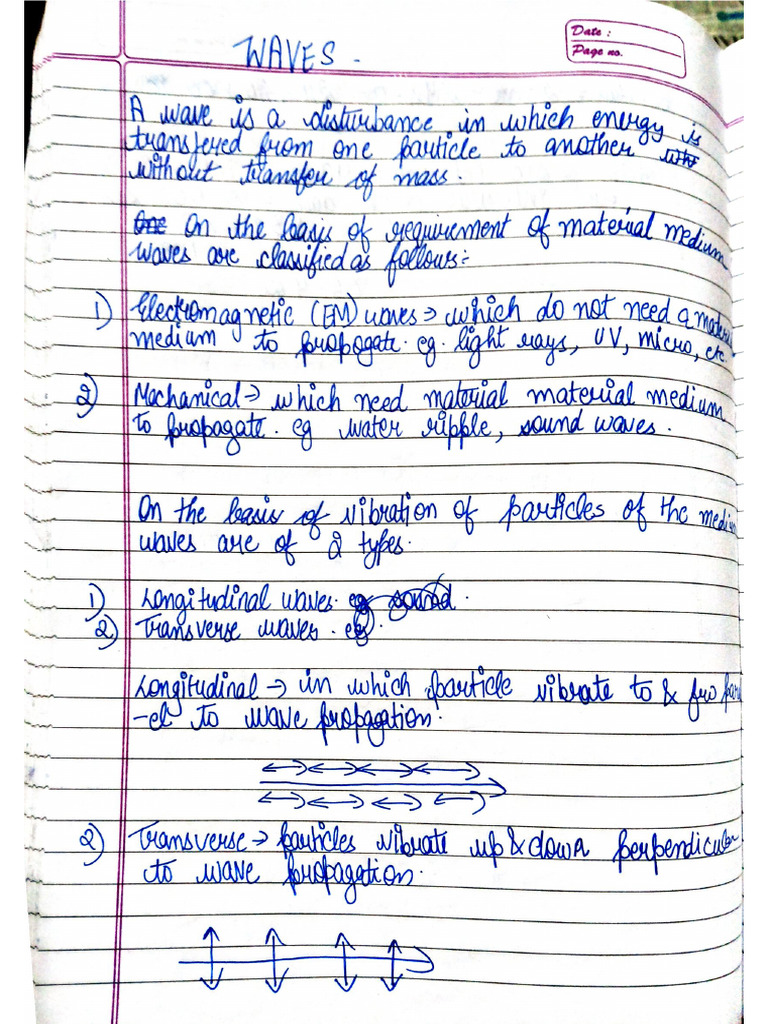 Date :
Page no.
WAVES -
A wave is a disturbance in which energy is
transfered from one particle to another
without transfer of mass.
On the basis of requirement of material medium
waves are classified as follows:-
1) Electromagnetic (EM) waves → which do not need a material
medium to propogate. eg. light rays, UV, micro, etc
2) Mechanical → which need material material medium
to propagate. eg water ripple, sound waves.
On the basis of vibration of particles of the medium
waves are of 2 types.
1) Longitudinal waves. eg sound.
2) Transverse waves. eg.
Longitudinal → in which particle vibrate to & fro paral
-el to wave propagation.
2) Transverse → particles vibrate up & down perpendicular
to wave propagation.